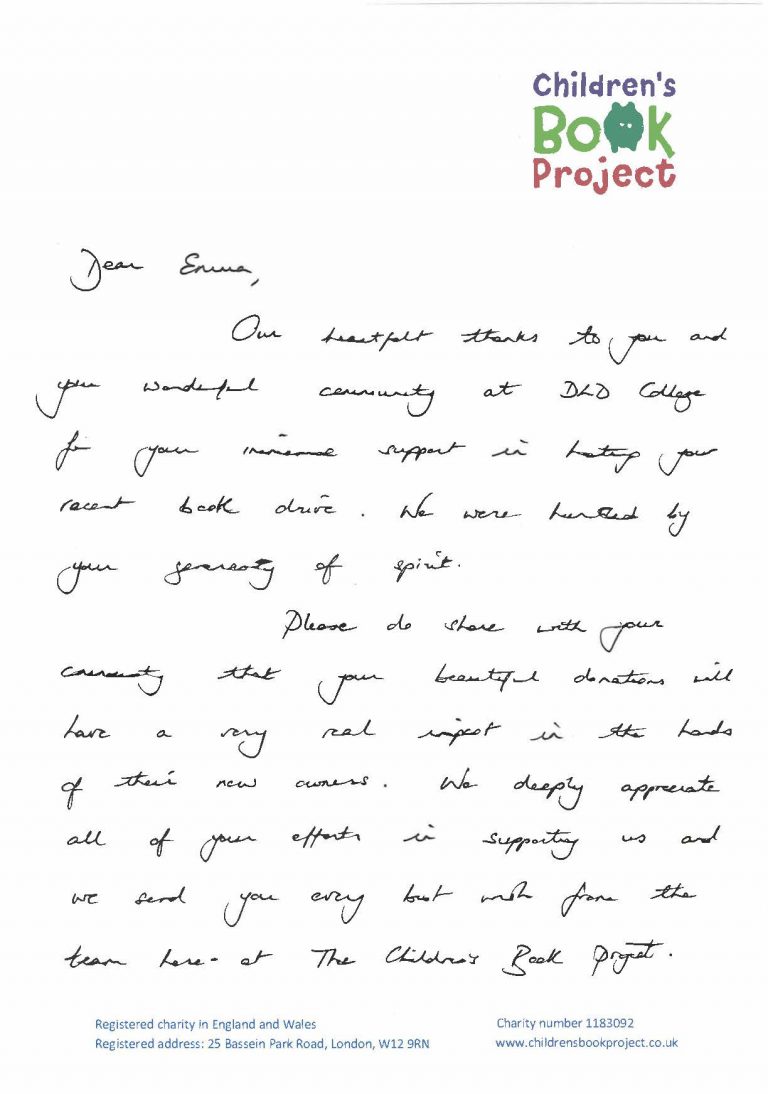 Children's
BOOK
Project
Dear Emma,
Our heartfelt thanks to you and
your wonderful community at DLD College
for your immense support in hosting your
recent book drive. We were humbled by
your generosity of spirit.
Please do share with your
community that your beautiful donations will
have a very real impact in the hands
of their new owners. We deeply appreciate
all of your efforts in supporting us and
we send you every best wish from the
team here at The Children's Book Project.
Registered charity in England and Wales
Registered address: 25 Bassein Park Road, London, W12 9RN
Charity number 1183092
www.childrensbookproject.co.uk